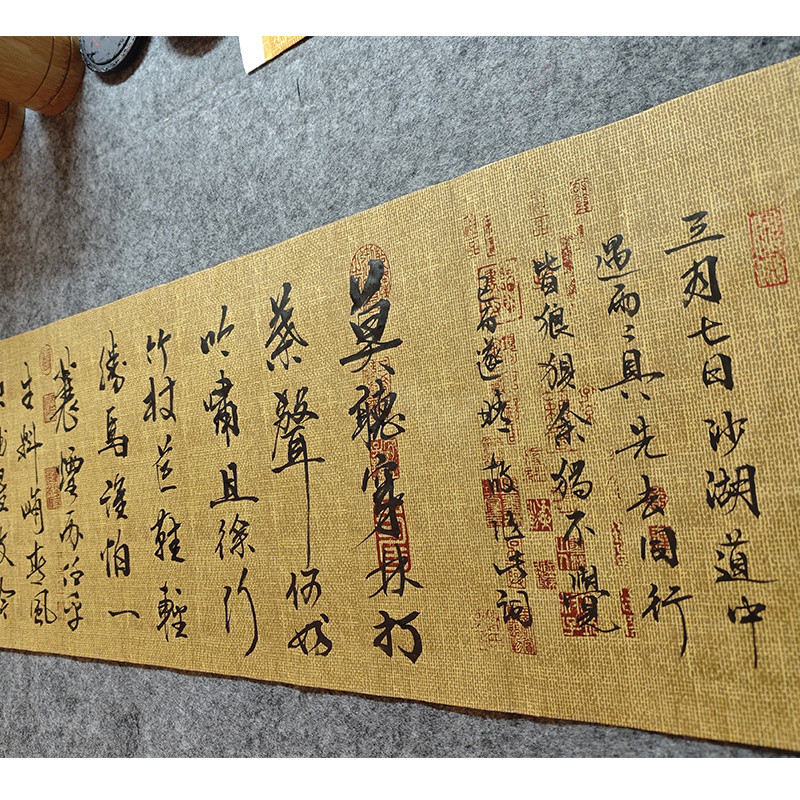 三月七日沙湖道中
遇雨〻具先去同行
皆狼狽余獨不覺
已而遂晴故作此詞
莫聽穿林打
葉聲何妨
吟嘯且徐行
竹杖芒鞋輕
勝馬誰怕一
蓑煙雨任平
生料峭春風